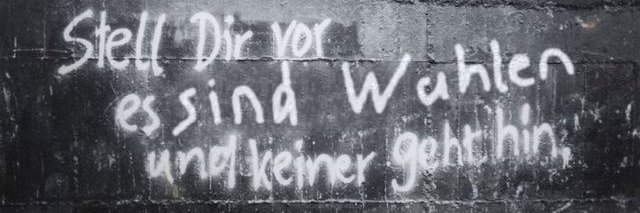 Stell Dir vor
es sind Wahlen
und keiner geht hin.